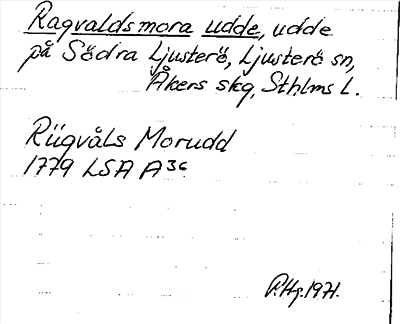 Ragvaldsmora udde, udde
på Södra Ljusterö, Ljusterö sn,
Åkers skg, Sthlms l.
Riigvåls Morudd
1779 LSA A 36
P.Hg. 1971.